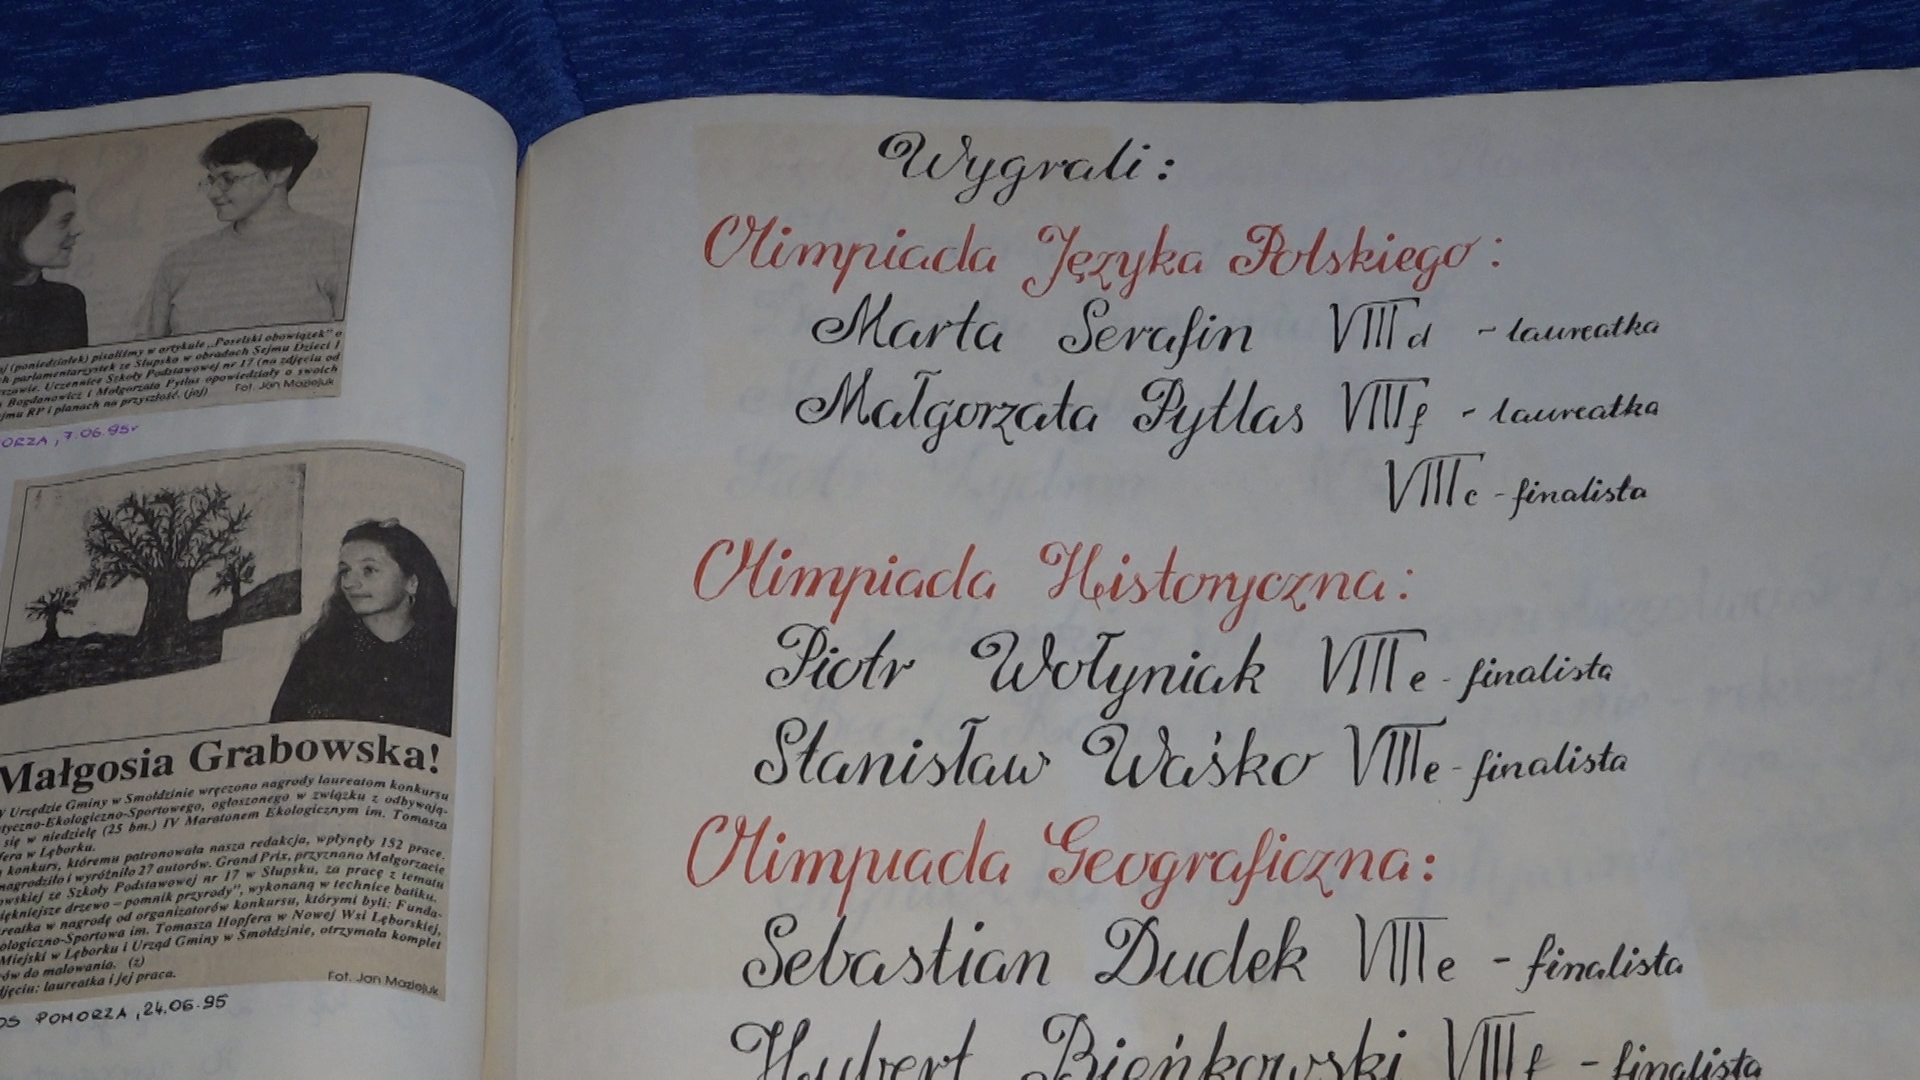 aj (poniedziałek) pisaliśmy w artykule „Poselski obowiązek" o
ch parlamentarzystek ze Słupska w obradach Sejmu Dzieci i
szawie. Uczennice Szkoły Podstawowej nr 17 (na zdjęciu od
Bogdanowicz i Małgorzata Pytlas opowiedziały o swoich
jmu RP i planach na przyszłość. (joj)
Fot. Jan Maziejuk
ORZA, 7.06.95r
Małgosia Grabowska!
W Urzędzie Gminy w Smołdzinie wręczono nagrody laureatom konkursu
tyczno-Ekologiczno-Sportowego, ogłoszonego w związku z odbywają-
się w niedzielę (25 bm.) IV Maratonem Ekologicznym im. Tomasza
fera w Lęborku.
konkurs, któremu patronowała nasza redakcja, wpłynęły 152 prace.
nagrodziło i wyróżniło 27 autorów. Grand Prix, przyznano Małgorzacie
owskiej ze Szkoły Podstawowej nr 17 w Słupsku, za pracę z tematu
iękniejsze drzewo – pomnik przyrody", wykonaną w technice batiku.
reatka w nagrodę od organizatorów konkursu, którymi byli: Funda-
ologiczno-Sportowa im. Tomasza Hopfera w Nowej Wsi Lęborskiej,
Miejski w Lęborku i Urząd Gminy w Smołdzinie, otrzymała komplet
ów do malowania. (z)
djęciu: laureatka i jej praca.
Fot. Jan Maziejuk
OS POMORZA, 24.06.95
Wygrali:
Olimpiada Języka Polskiego:
Marta Serafin VIII d - laureatka
Małgorzata Pytlas VIII f - laureatka
VIII c - finalista
Olimpiada Historyczna:
Piotr Wołyniak VIII e - finalista
Stanisław Waśko VIII e - finalista
Olimpiada Geograficzna:
Sebastian Dudek VIII e - finalista
Hubert Bieńkowski VIII f - finalista